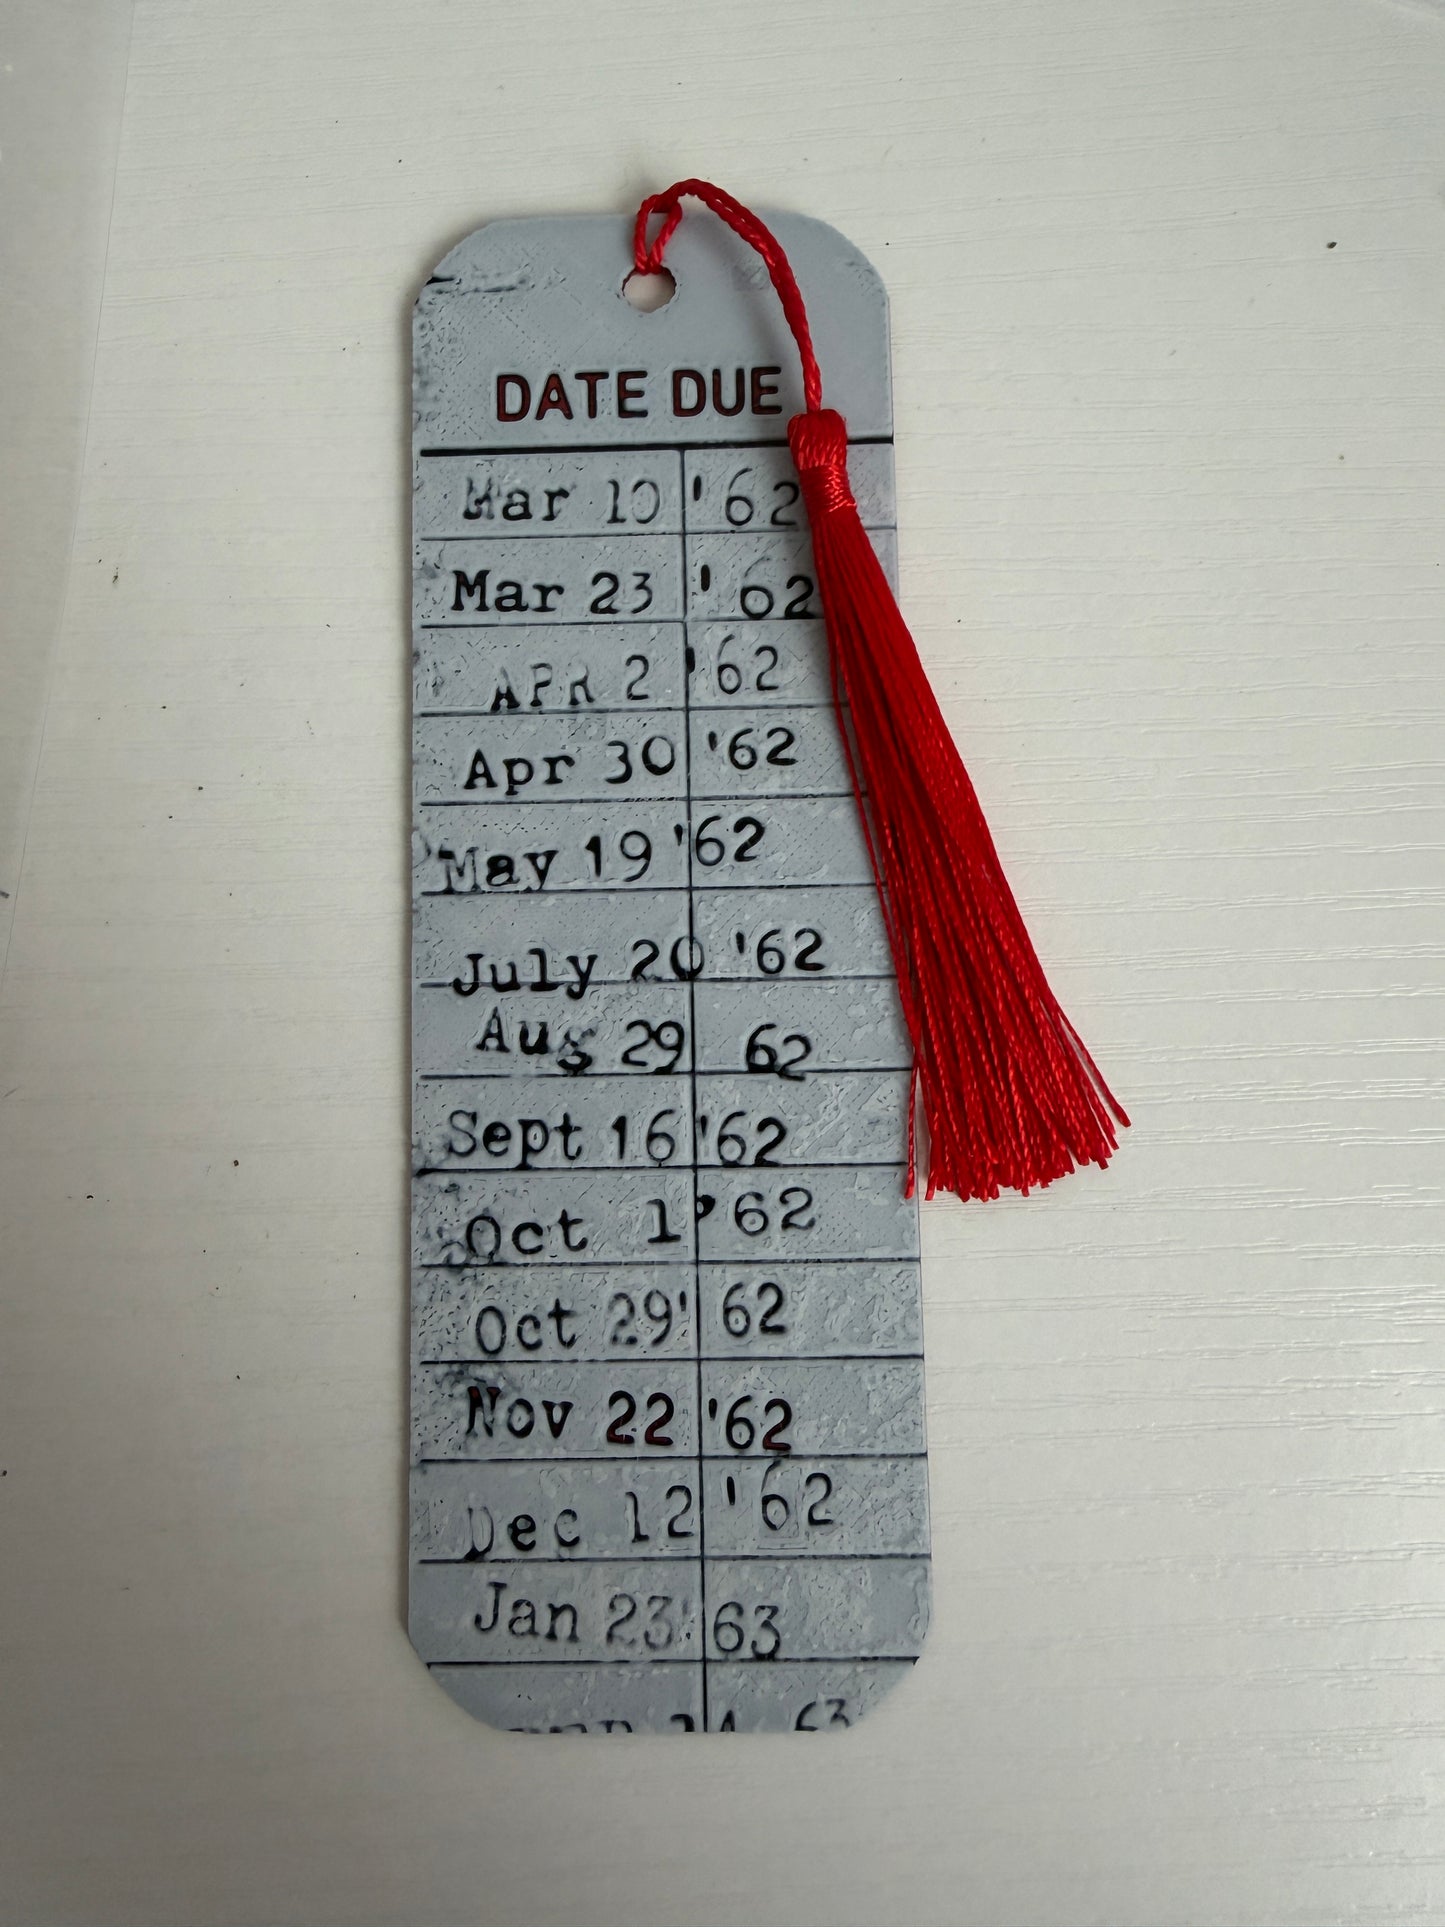 DATE DUE
Mar 10 '62
Mar 23 '62
APR 2 '62
Apr 30 '62
May 19 '62
July 20 '62
Aug 29 62
Sept 16 '62
Oct 1 '62
Oct 29' 62
Nov 22 '62
Dec 12 '62
Jan 23' 63
63